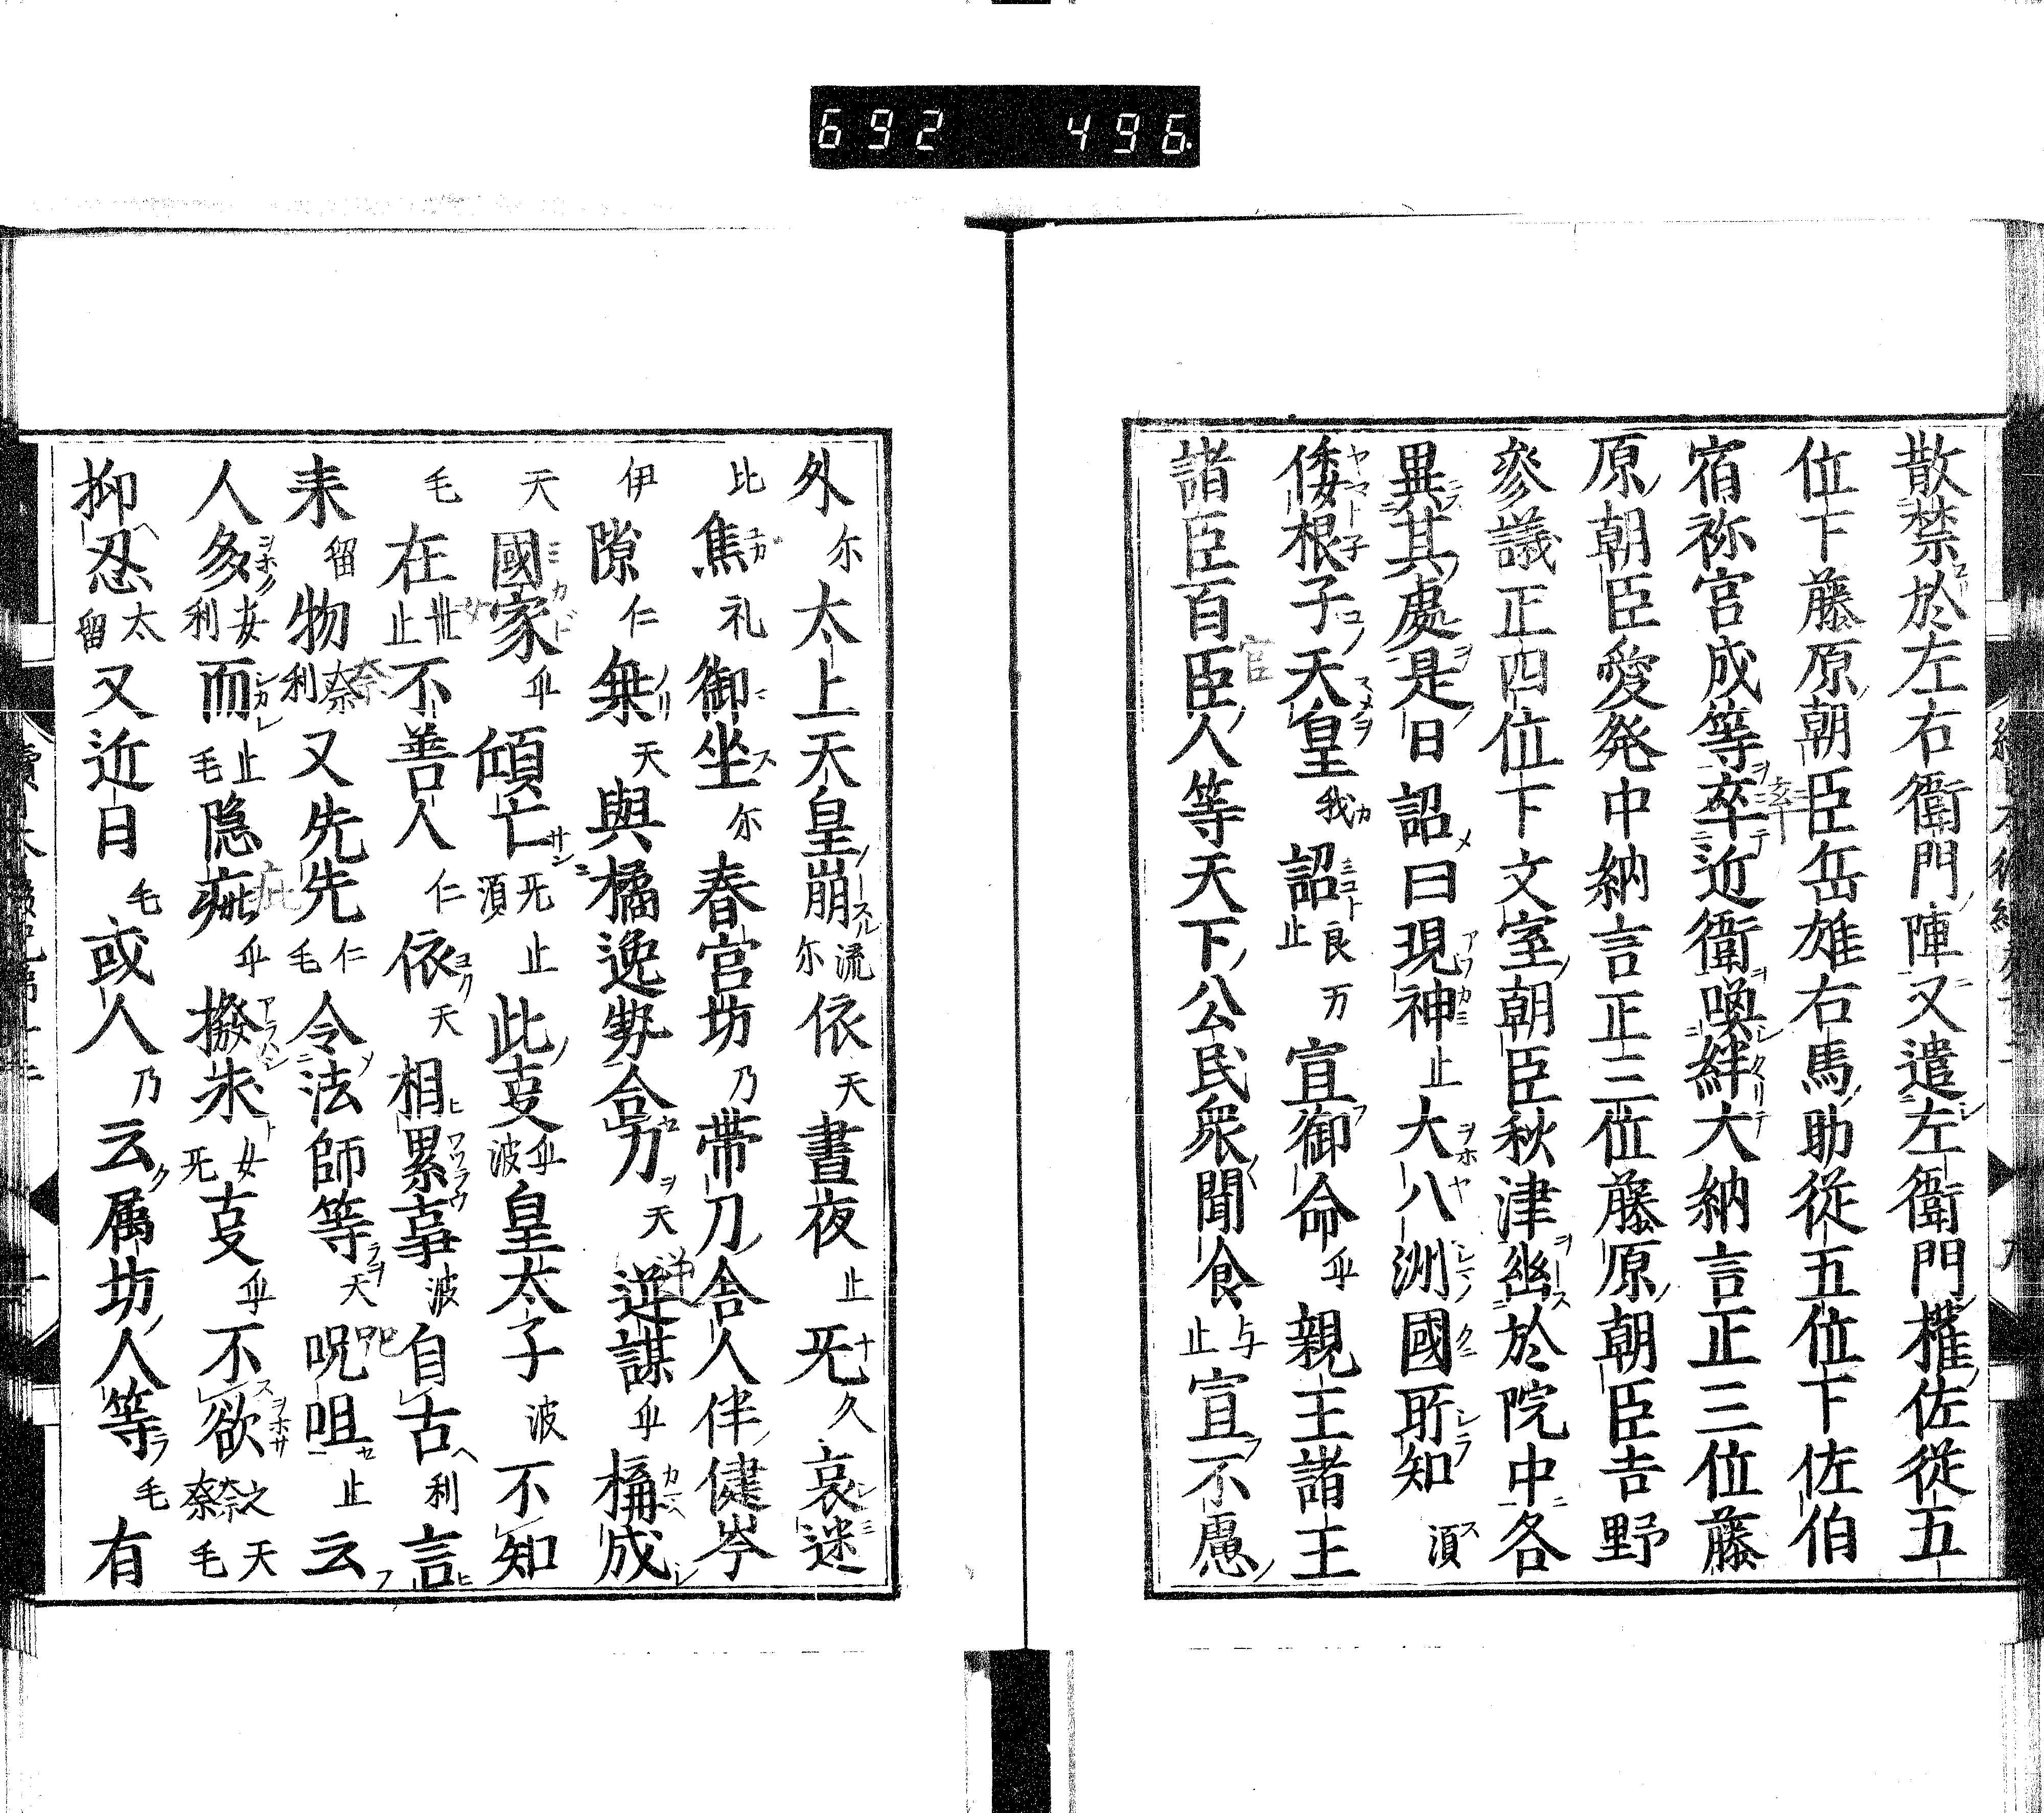 692 496.
散禁於左右衛門陣又遣左衛門權佐從五
位下藤原朝臣岳雄右馬助從五位下佐伯
宿祢宮成等卒近衛喚絆大納言正三位藤
原朝臣愛発中納言正三位藤原朝臣吉野
參議正四位下文室朝臣秋津幽於院中各
異其處是日詔曰現神止大八洲國所知須
倭根子天皇我詔良万止宣御命乎親王諸王
諸臣百臣人等天下公民衆聞食与止宣不慮
外尓太上天皇崩流尓依天晝夜止死久哀迷
比焦礼御坐尓春宮坊乃帯刀舎人伴健岑
伊隙仁乗天與橘逸勢合力天逆謀乎構成
天國家乎傾亡死須止此事乎波皇太子波不知
毛在世止不善人仁依天相累事波自古利言
来留物奈利又先先仁毛令法師等天呪咀止云
人多安利而止毛隠疵乎撥求女死事乎不欲奈之天毛
抑忍太留又近日毛或人乃云属坊人等毛有